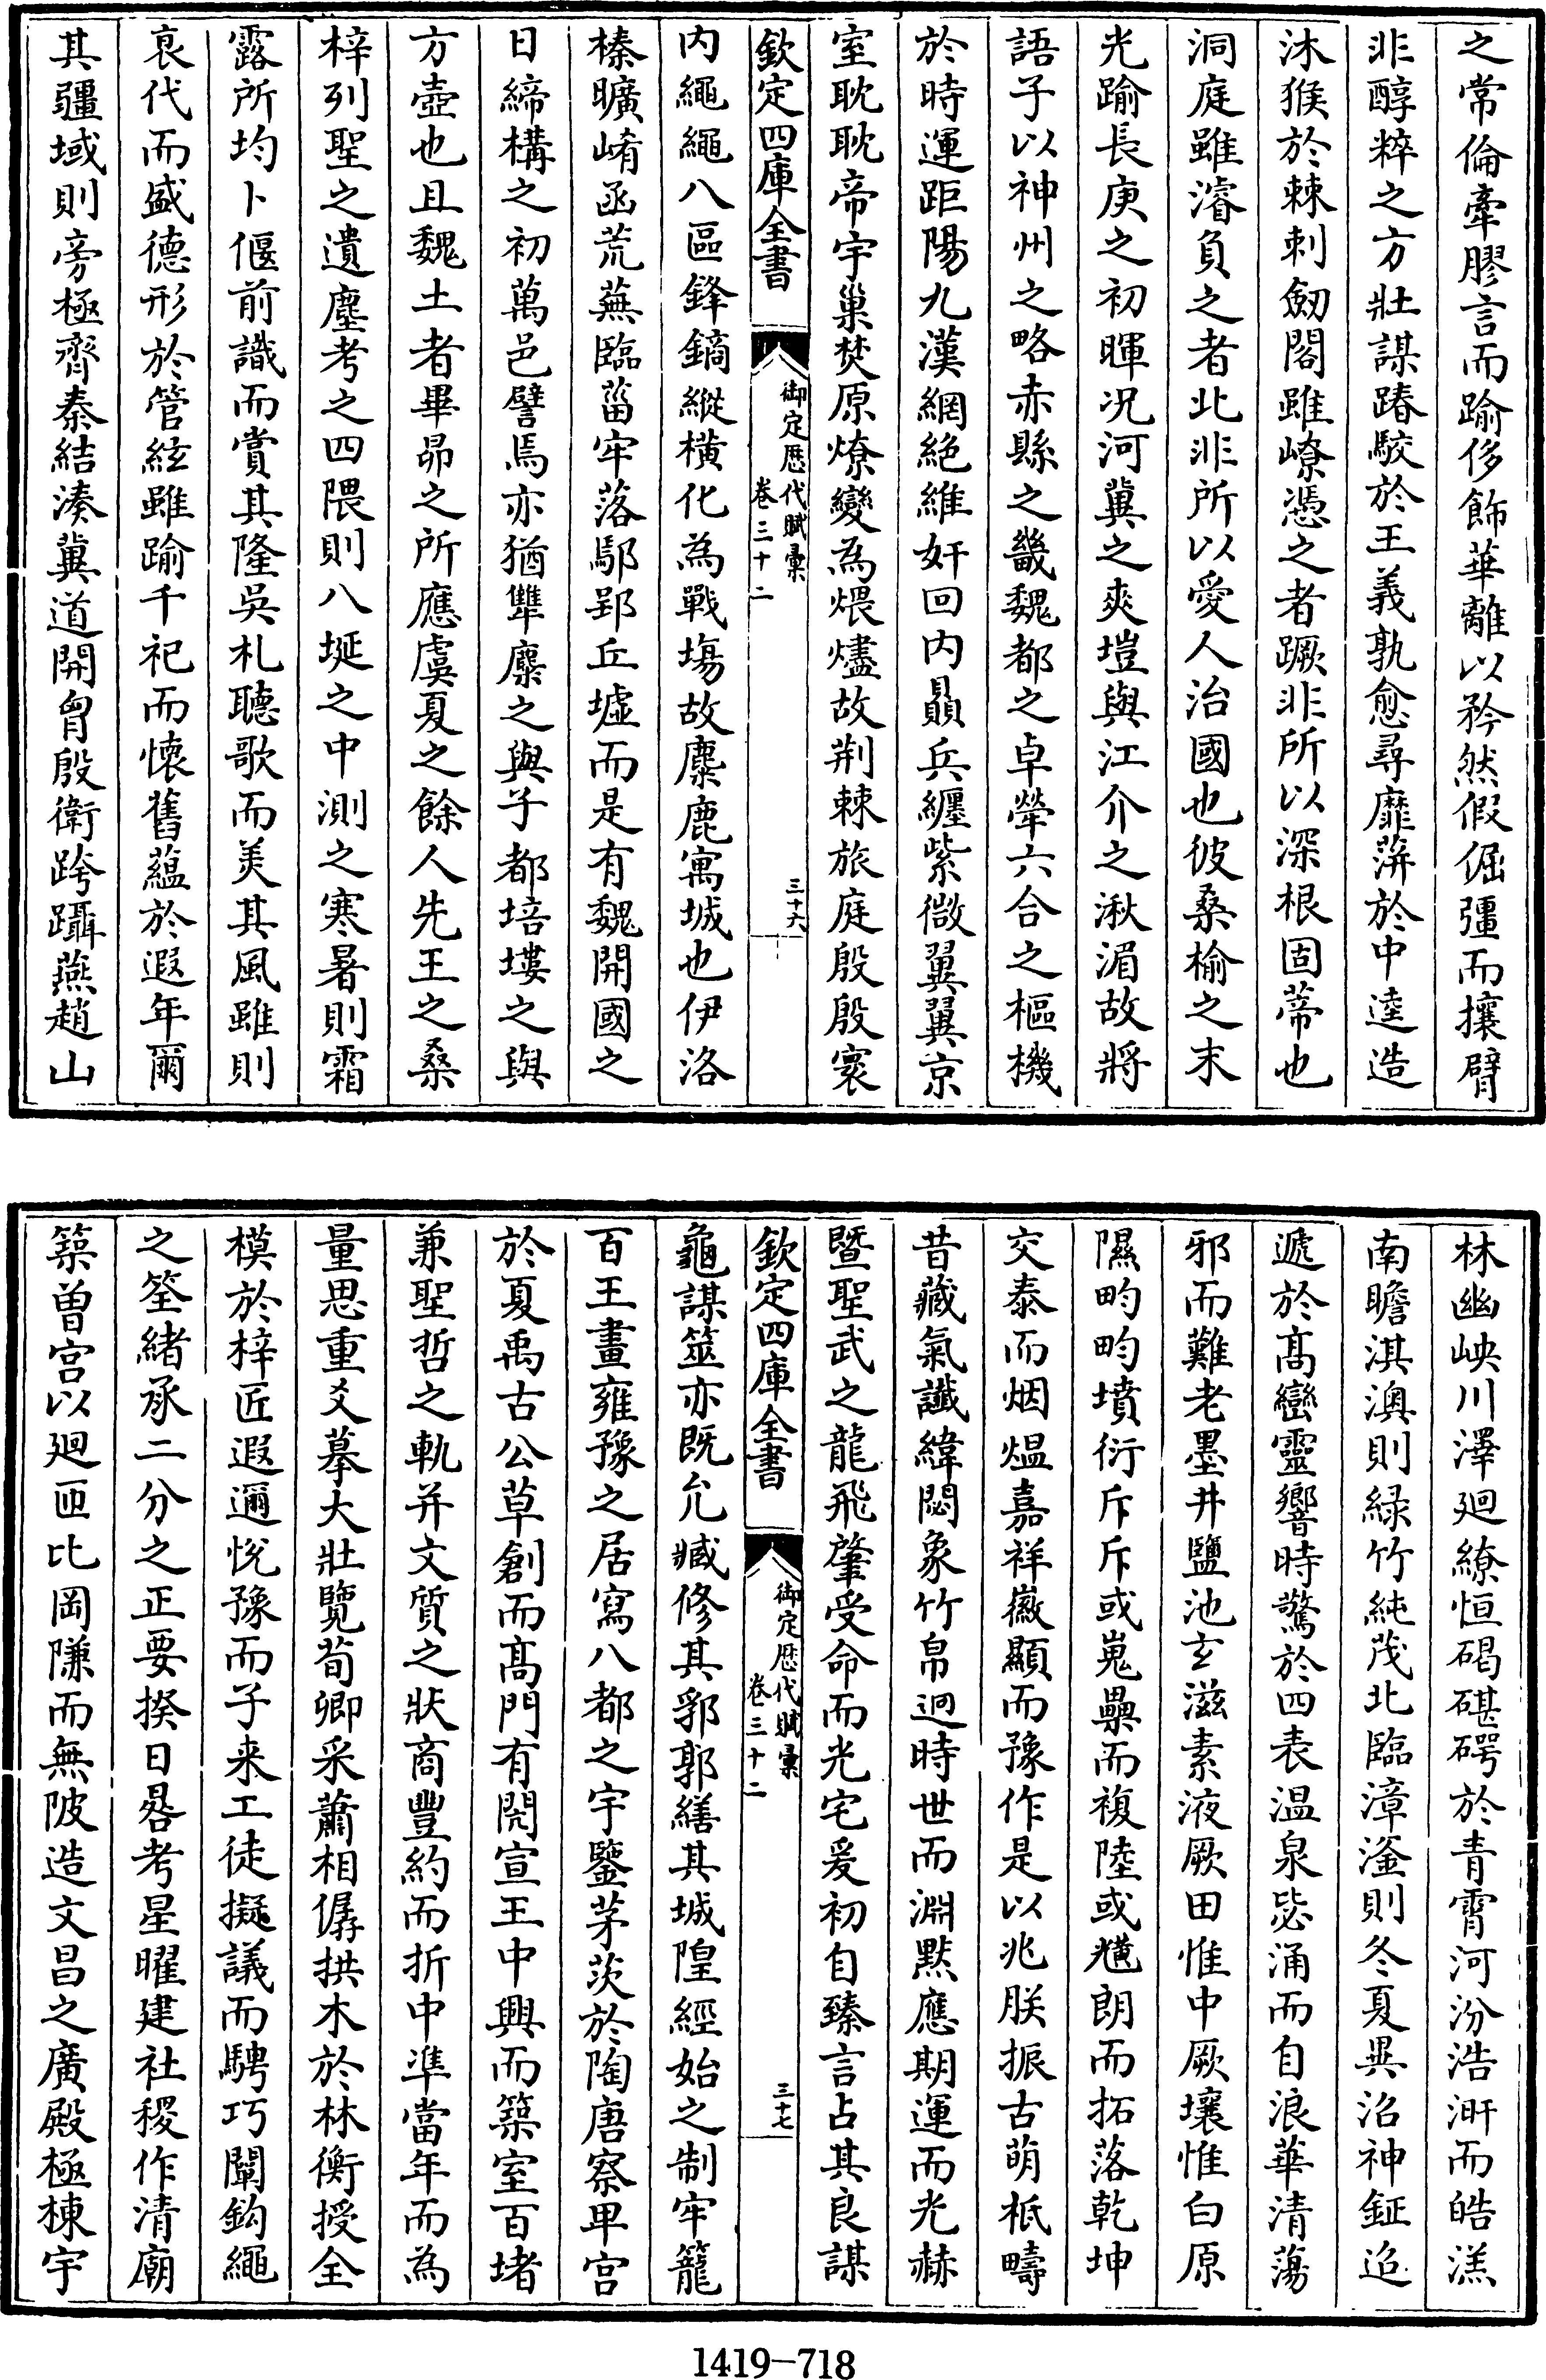 之常倫牽膠言而踰侈飾華離以矜然假倔彊而攘臂
非醇粹之方壯謀踳駮於王義孰愈尋靡蓱於中逵造
沐猴於棘刺劒閣雖嶚憑之者蹶非所以深根固蒂也
洞庭雖濬負之者北非所以愛人治國也彼桑榆之末
光踰長庚之初暉况河冀之爽塏與江介之湫湄故將
語子以神州之略赤縣之畿魏都之卓犖六合之樞機
於時運距陽九漢網絶維奸回内贔兵纒紫微翼翼京
室耽耽帝宇巢焚原燎變為煨燼故荆棘旅庭殷殷寰
欽定四庫全書
御定歷代賦彙
卷三十二
三十六
内繩繩八區鋒鏑縱横化為戰塲故麋鹿寓城也伊洛
榛曠崤函荒蕪臨菑牢落鄢郢丘墟而是有魏開國之
日締構之初萬邑譬焉亦猶犨麋之與子都培塿之與
方壺也且魏土者畢昴之所應虞夏之餘人先王之桑
梓列聖之遺塵考之四隈則八埏之中測之寒暑則霜
露所均卜偃前識而賞其隆吳札聽歌而美其風雖則
衰代而盛德形於管絃雖踰千祀而懷舊蘊於遐年爾
其疆域則旁極齊秦結湊冀道開胷殷衛跨躡燕趙山
林幽岟川澤廻繚恒碣碪礐於青霄河汾浩汗而皓溔
南瞻淇澳則緑竹純茂北臨漳滏則冬夏異沼神鉦迢
遞於髙巒靈響時驚於四表温泉毖涌而自浪華清蕩
邪而難老墨井鹽池玄滋素液厥田惟中厥壤惟白原
隰畇畇墳衍斥斥或嵬壘而複陸或爌朗而拓落乾坤
交泰而烟熅嘉祥徽顯而豫作是以兆朕振古萌柢疇
昔藏氣讖緯閟象竹帛迥時世而淵默應期運而光赫
暨聖武之龍飛肇受命而光宅爰初自臻言占其良謀
欽定四庫全書
御定歷代賦彙
卷三十二
三十七
龜謀筮亦既允臧修其郛郭繕其城隍經始之制牢籠
百王畫雍豫之居寫八都之宇鑒茅茨於陶唐察卑宫
於夏禹古公草創而髙門有閌宣王中興而築室百堵
兼聖哲之軌并文質之狀商豐約而折中凖當年而為
量思重爻摹大壯覽荀卿采蕭相僝拱木於林衡授全
模於梓匠遐邇悦豫而子来工徒擬議而騁巧闡鈎繩
之筌緒承二分之正要揆日晷考星曜建社稷作清廟
築曽宫以廻匝比岡隒而無陂造文昌之廣殿極棟宇
1419-718